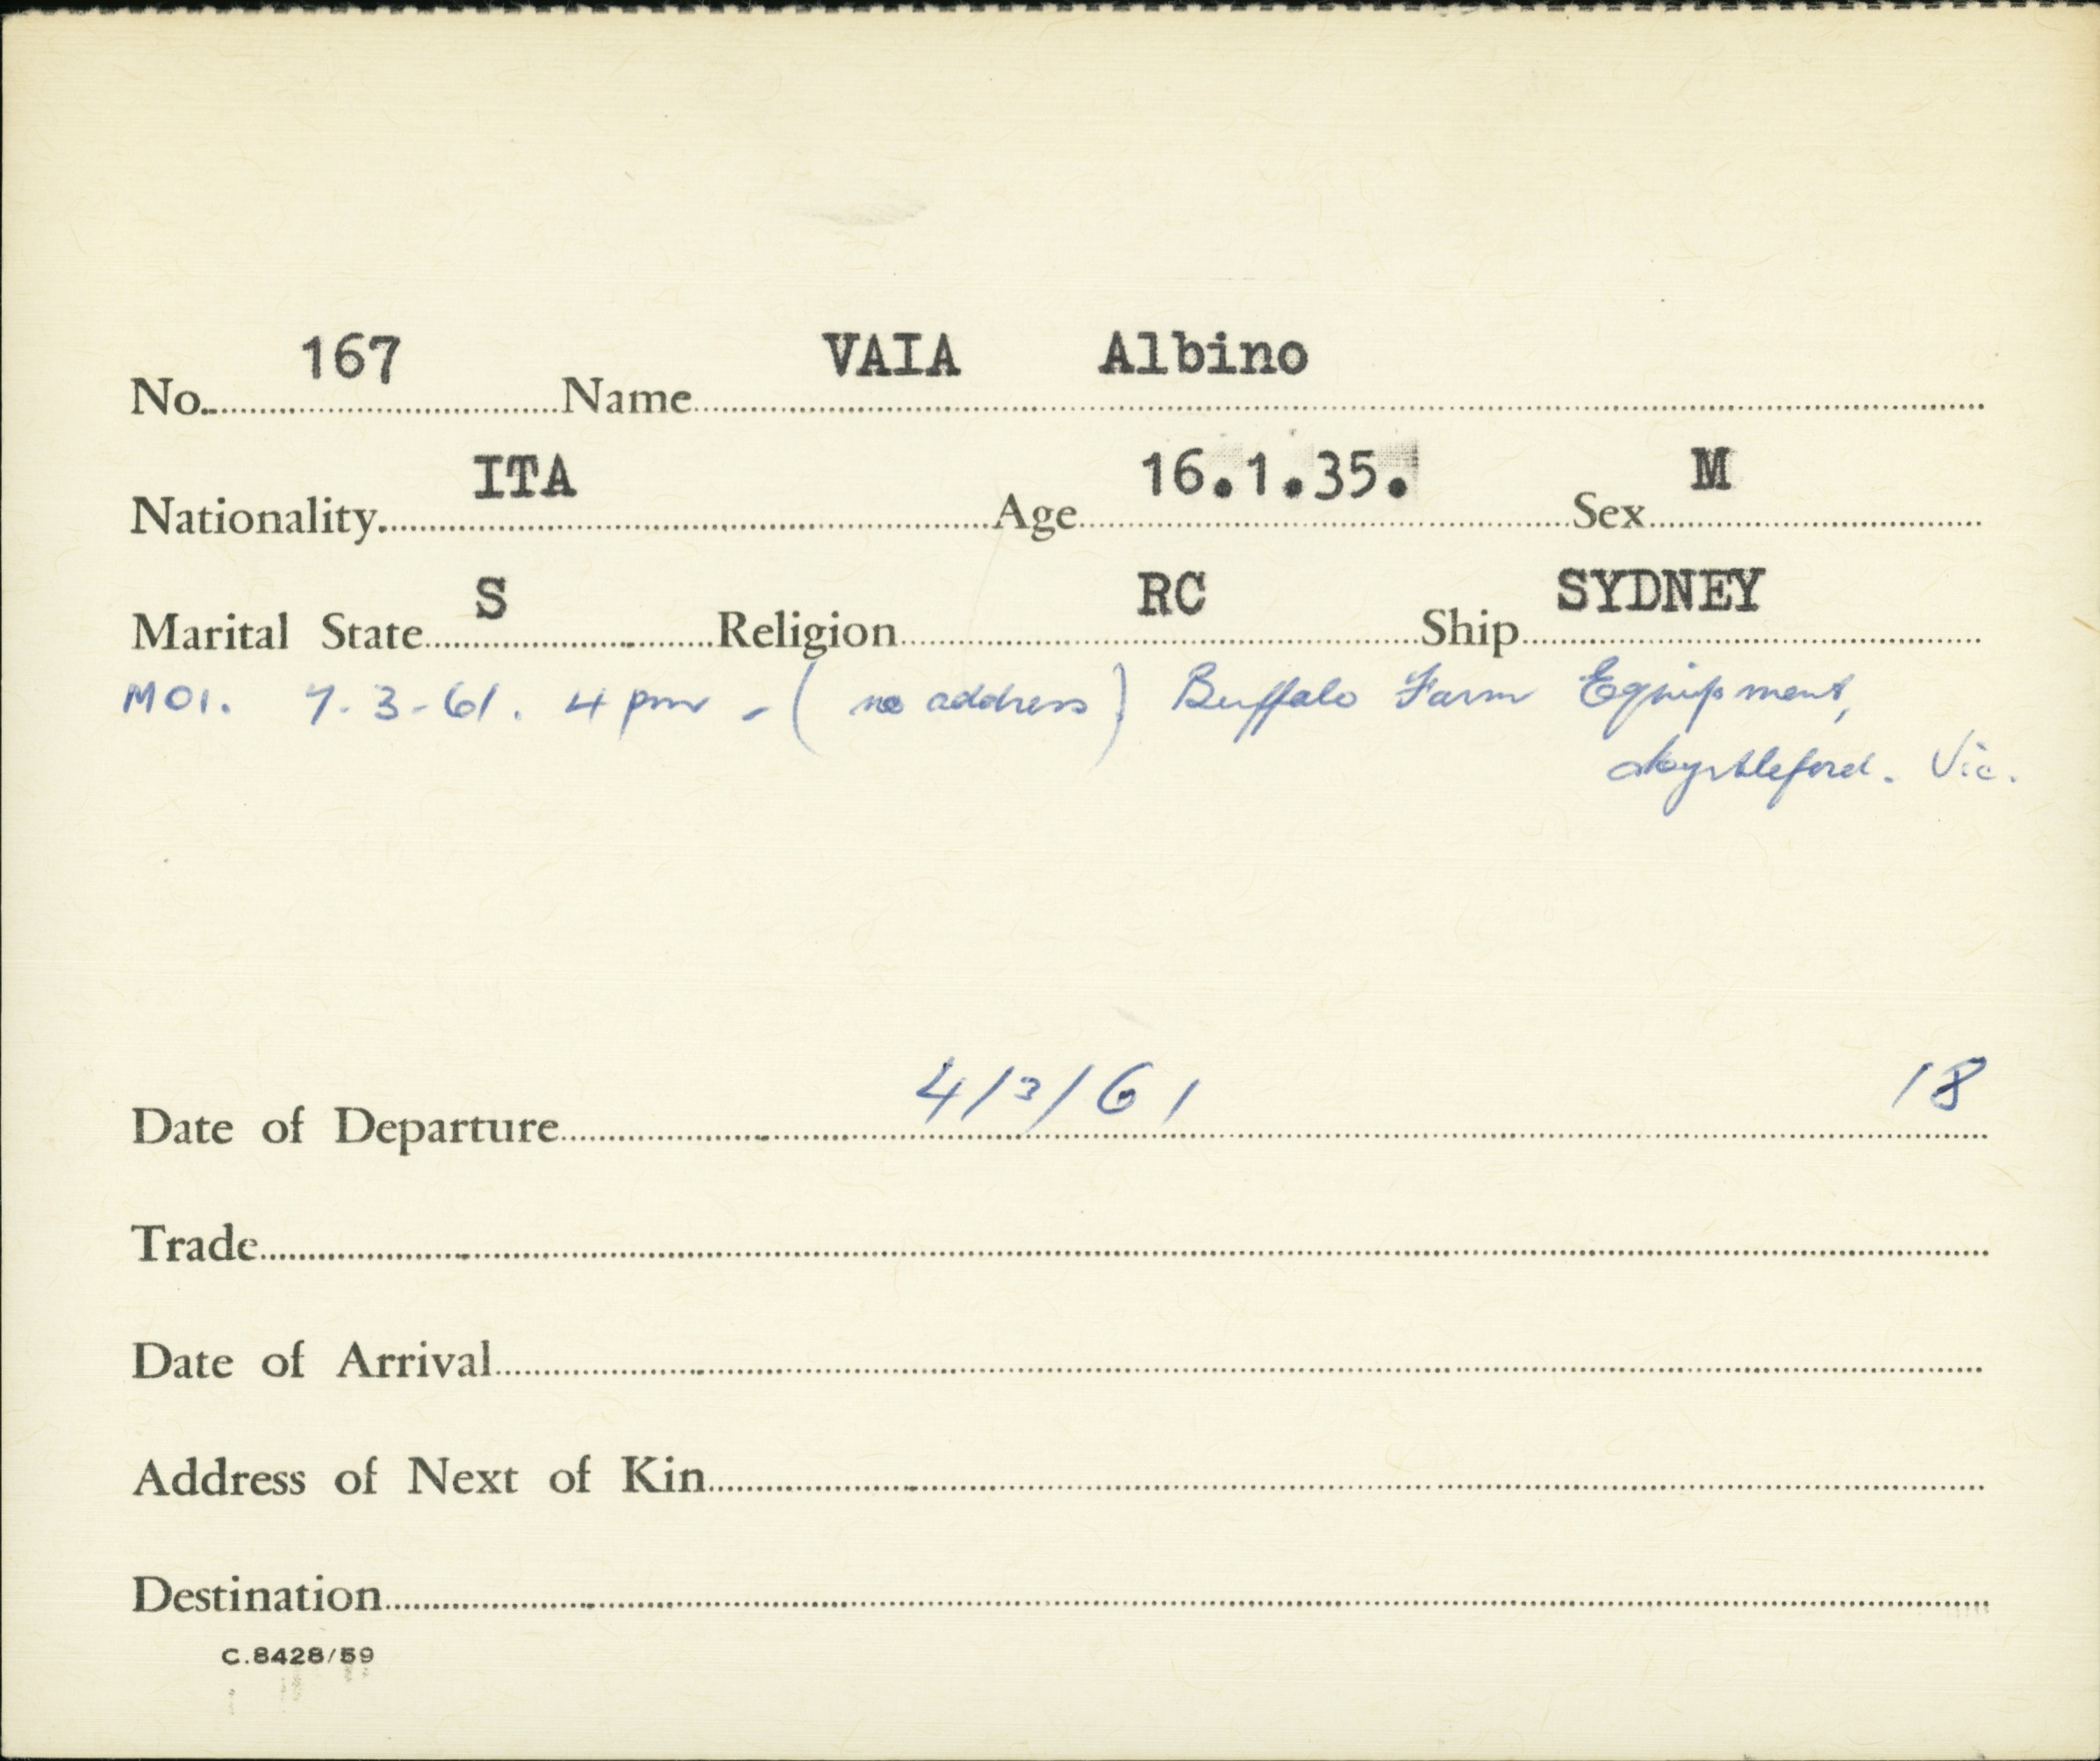 No. 167 Name VAIA Albino
Nationality ITA Age 16.1.35. Sex M
Marital State S Religion RC Ship SYDNEY
MOI. 7.3-61. 4 pm - (no address) Buffalo Farm Equipment,
Myrtleford. Vic.
Date of Departure 4/3/61 18
Trade
Date of Arrival
Address of Next of Kin
Destination
C.8428/59